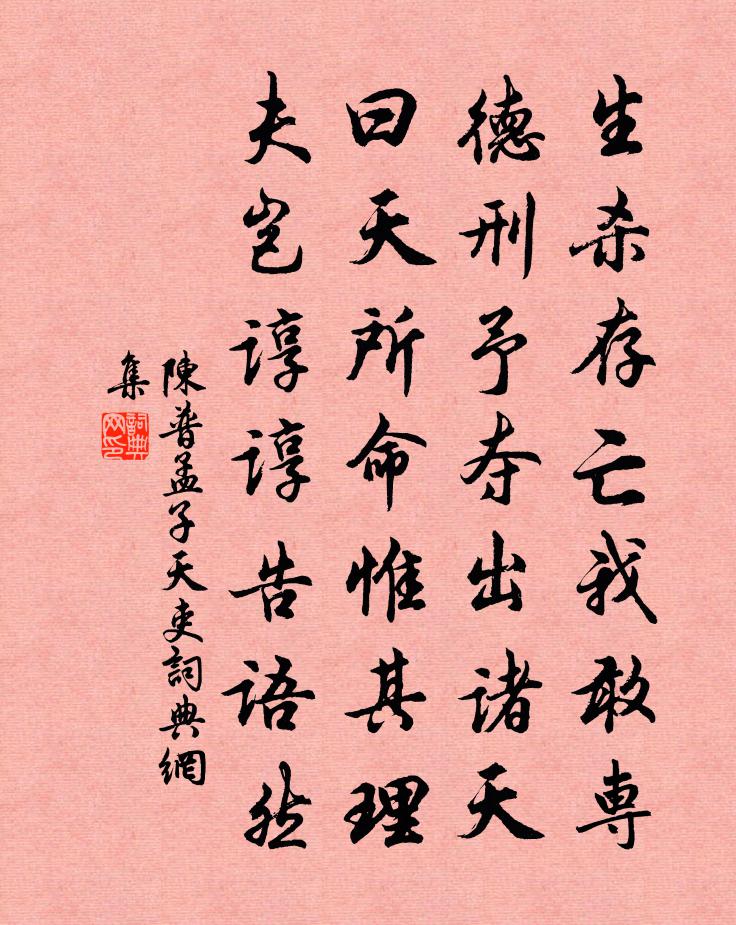 生杀存亡我敢専
德刑予夺出诸天
曰天所命惟其理
夫岂谆谆告语然
陳普孟子天吏詞典網
集
詞典网印